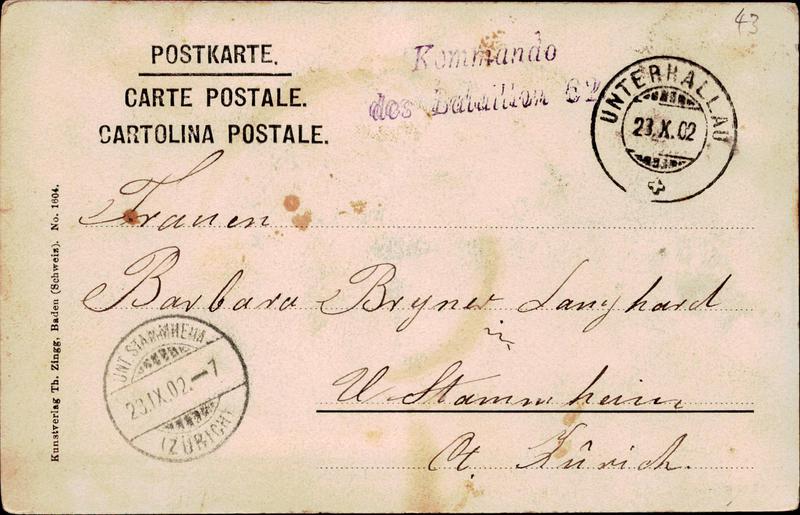 43
POSTKARTE.
CARTE POSTALE.
CARTOLINA POSTALE.
Kommando
des Bataillon 62
UNTERHALLAU
23.X.02
Frauen
Barbara Bryner Langhard
in
U. Stammheim
Ct. Zürich.
UNT. STAMMHEIM
23.IX.02.–7
(ZÜRICH)
Kunstverlag Th. Zingg, Baden (Schweiz). No. 1604.